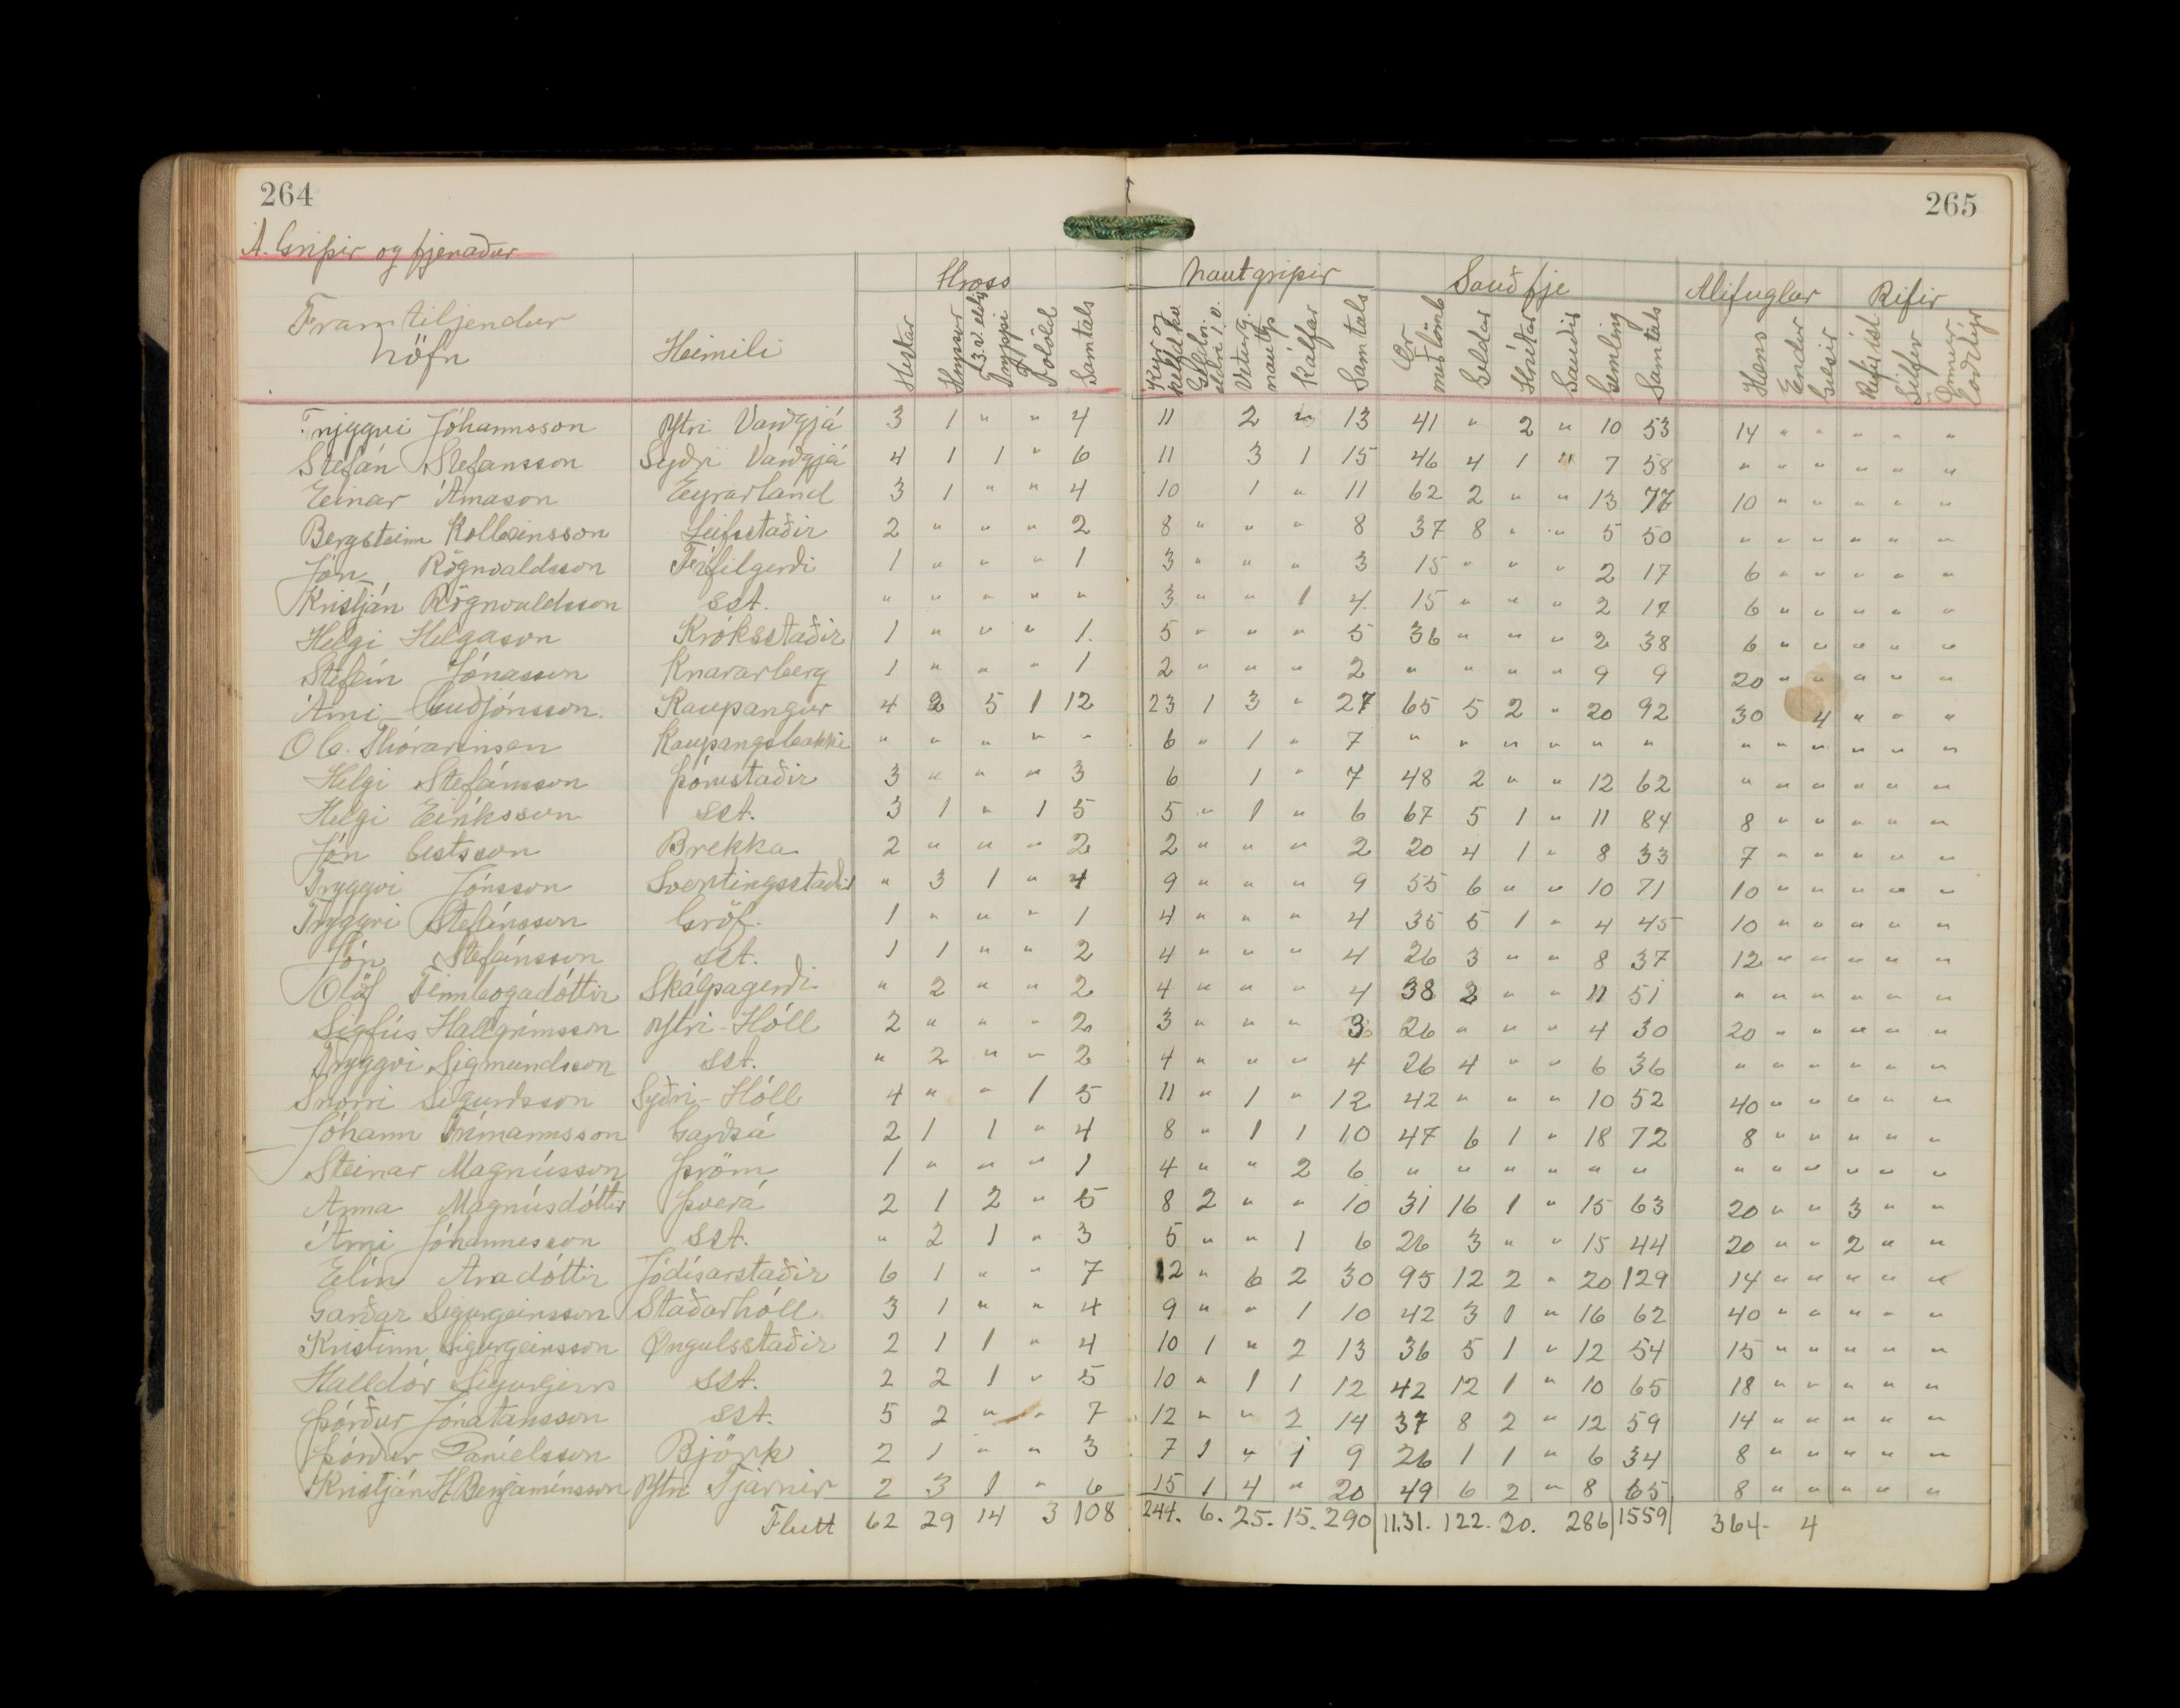 264
265
A. Gripir og fjenaður
Hross Nautgripir Sauðfje Alifuglar Refir
Framteljendur
nöfn Heimili Hestar Hryssur Tryppi Folöld Samtals Kýr og kelfdar kv. Geldn. eldri Veturg. nautgr. Kálfar Samtals Ær með lömb Geldar Hrútar Sauðir Gemling Samtals Hæns Endur Gæsir Refir ísl. Silfur Önnur loðdýr
Tryggvi Jóhannsson Ytri Varðgjá 3 1 " " 4 11 2 " 13 41 " 2 " 10 53 14 " " " " "
Stefán Stefansson Syðri Varðgjá 4 1 1 " 6 11 3 1 15 46 4 1 " 7 58 " " " " " "
Einar Árnason Eyrarland 3 1 " " 4 10 1 " 11 62 2 " " 13 77 10 " " " " "
Bergsteinn Kolbeinsson Leifsstaðir 2 " " " 2 8 " " " 8 37 8 " " 5 50 " " " " " "
Jón Rögnvaldsson Fífilgerði 1 " " " 1 3 " " " 3 15 " " " 2 17 6 " " " " "
Kristján Rögnvaldsson sst. " " " " " 3 " " 1 4 15 " " " 2 17 6 " " " " "
Helgi Helgason Króksstaðir 1 " " " 1. 5 " " " 5 36 " " " 2 38 6 " " " " "
Stefán Jónasson Knararberg 1 " " " 1 2 " " " 2 " " " " 9 9 20 " " " " "
Árni Guðjónsson. Kaupangur 4 2 5 1 12 23 1 3 " 27 65 5 2 " 20 92 30 4 " " "
O C. Thorarensen Kaupangsbakki " " " " " 6 " 1 " 7 " " " " " " " " " " " "
Helgi Stefánsson Þórustaðir 3 " " " 3 6 1 " 7 48 2 " " 12 62 " " " " " "
Helgi Eiríksson sst. 3 1 " 1 5 5 " 1 " 6 67 5 1 " 11 84 8 " " " " "
Jón Gestsson Brekka 2 " " " 2 2 " " " 2 20 4 1 " 8 33 7 " " " " "
Tryggvi Jónsson Svertingsstaðir " 3 1 " 4 9 " " " 9 55 6 " " 10 71 10 " " " " "
Tryggvi Stefánsson Gröf. 1 " " " 1 4 " " " 4 35 5 1 " 4 45 10 " " " " "
Jón Stefánsson sst. 1 1 " " 2 4 " " " 4 26 3 " " 8 37 12 " " " " "
Ólöf Finnbogadóttir Skálpagerði " 2 " " 2 4 " " " 4 38 2 " " 11 51 " " " " " "
Sigfús Hallgrímsson Ytri-Hóll 2 " " " 2 3 " " " 3 26 " " " 4 30 20 " " " " "
Tryggvi Sigmundsson sst. " 2 " " 2 4 " " " 4 26 4 " " 6 36 " " " " " "
Snorri Sigurðsson Syðri-Hóll 4 " " 1 5 11 " 1 " 12 42 " " " 10 52 40 " " " " "
Jóhann Frímannsson Garðsá 2 1 1 " 4 8 " 1 1 10 47 6 1 " 18 72 8 " " " " "
Steinar Magnússon Þröm 1 " " " 1 4 " " 2 6 " " " " " " " " " " " "
Anna Magnúsdóttir Þverá 2 1 2 " 5 8 2 " " 10 31 16 1 " 15 63 20 " " 3 " "
Árni Jóhannesson sst. " 2 1 " 3 5 " " 1 6 26 3 " " 15 44 20 " " 2 " "
Elín Aradóttir Jódísarstaðir 6 1 " " 7 12 " 6 2 30 95 12 2 " 20 129 14 " " " " "
Garðar Sigurgeirsson Staðarhóll 3 1 " " 4 9 " " 1 10 42 3 1 " 16 62 40 " " " " "
Kristinn Sigurgeirsson Øngulsstaðir 2 1 1 " 4 10 1 " 2 13 36 5 1 " 12 54 15 " " " " "
Halldór Sigurgeirs sst. 2 2 1 " 5 10 " 1 1 12 42 12 1 " 10 65 18 " " " " "
Þórður Jónatansson sst. 5 2 " " 7 12 " " 2 14 37 8 2 " 12 59 14 " " " " "
Þórður Daníelsson Björk 2 1 " " 3 7 1 " 1 9 26 1 1 " 6 34 8 " " " " "
Kristján H Benjamínsson Ytri Tjarnir 2 3 1 " 6 15 1 4 " 20 49 6 2 " 8 65 8 " " " " "
Flutt 62 29 14 3 108 244. 6. 25. 15. 290 11.31. 122. 20. 286 1559 364- 4